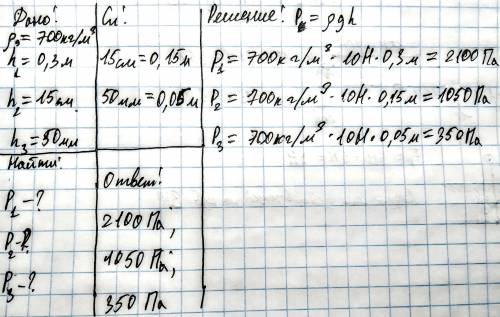 Дано:
ρ₃ = 700кг/м³
h₁ = 0,3м
h₂ = 15см
h₃ = 50мм
Си:
15см = 0,15м
50мм = 0,05м
Решение: P = ρgh
P₁ = 700кг/м³ · 10Н · 0,3м = 2100Па
P₂ = 700кг/м³ · 10Н · 0,15м = 1050Па
P₃ = 700кг/м³ · 10Н · 0,05м = 350Па
Найти:
P₁ - ?
P₂ - ?
P₃ - ?
Ответ:
2100Па;
1050Па;
350Па